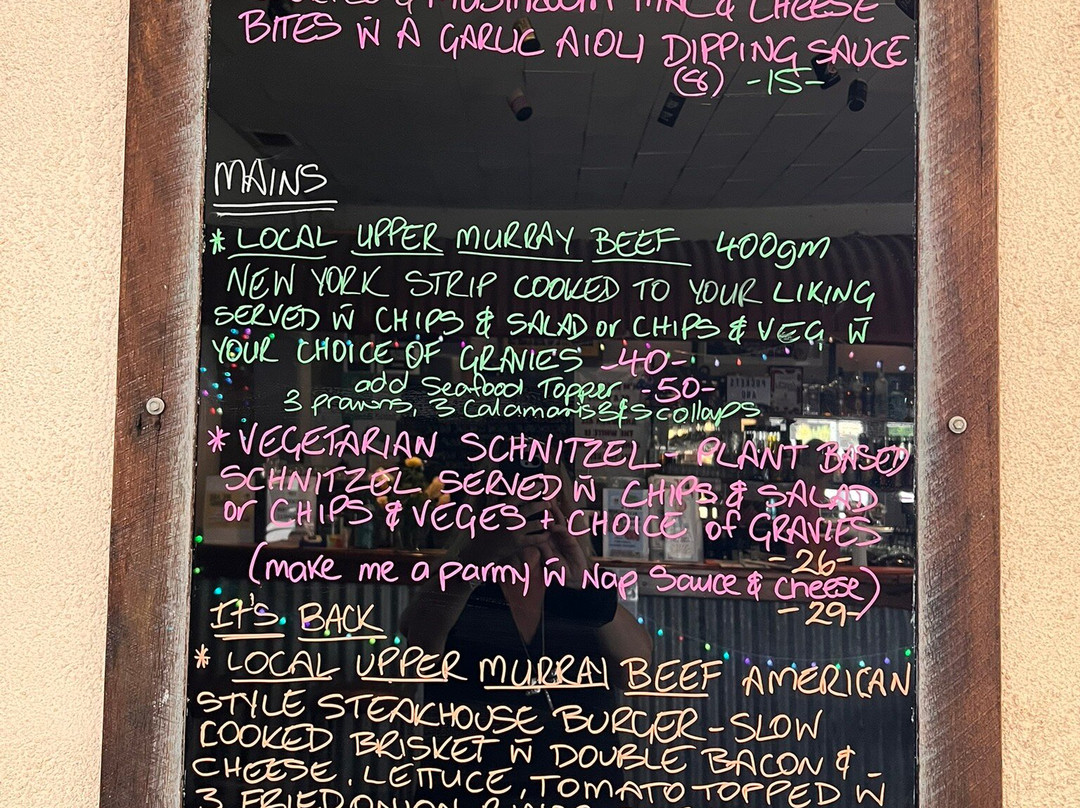 & MUSHROOM MAC & CHEESE
BITES W̄ A GARLIC AIOLI DIPPING SAUCE
(8) -15-
MAINS
* LOCAL UPPER MURRAY BEEF 400gm
NEW YORK STRIP COOKED TO YOUR LIKING
SERVED W̄ CHIPS & SALAD or CHIPS & VEG W̄
YOUR CHOICE OF GRAVIES -40-
add Seafood Topper -50-
3 prawns, 3 Calamaris 3 & scollaps
* VEGETARIAN SCHNITZEL - PLANT BASED
SCHNITZEL SERVED W̄ CHIPS & SALAD
or CHIPS & VEGES + CHOICE of GRAVIES
-26-
(make me a parmy W̄ Nap Sauce & cheese)
-29-
IT'S BACK
* LOCAL UPPER MURRAY BEEF AMERICAN
STYLE STEAKHOUSE BURGER - SLOW
COOKED BRISKET W̄ DOUBLE BACON &
CHEESE, LETTUCE, TOMATO TOPPED W̄
3 FRIED ONION RINGS